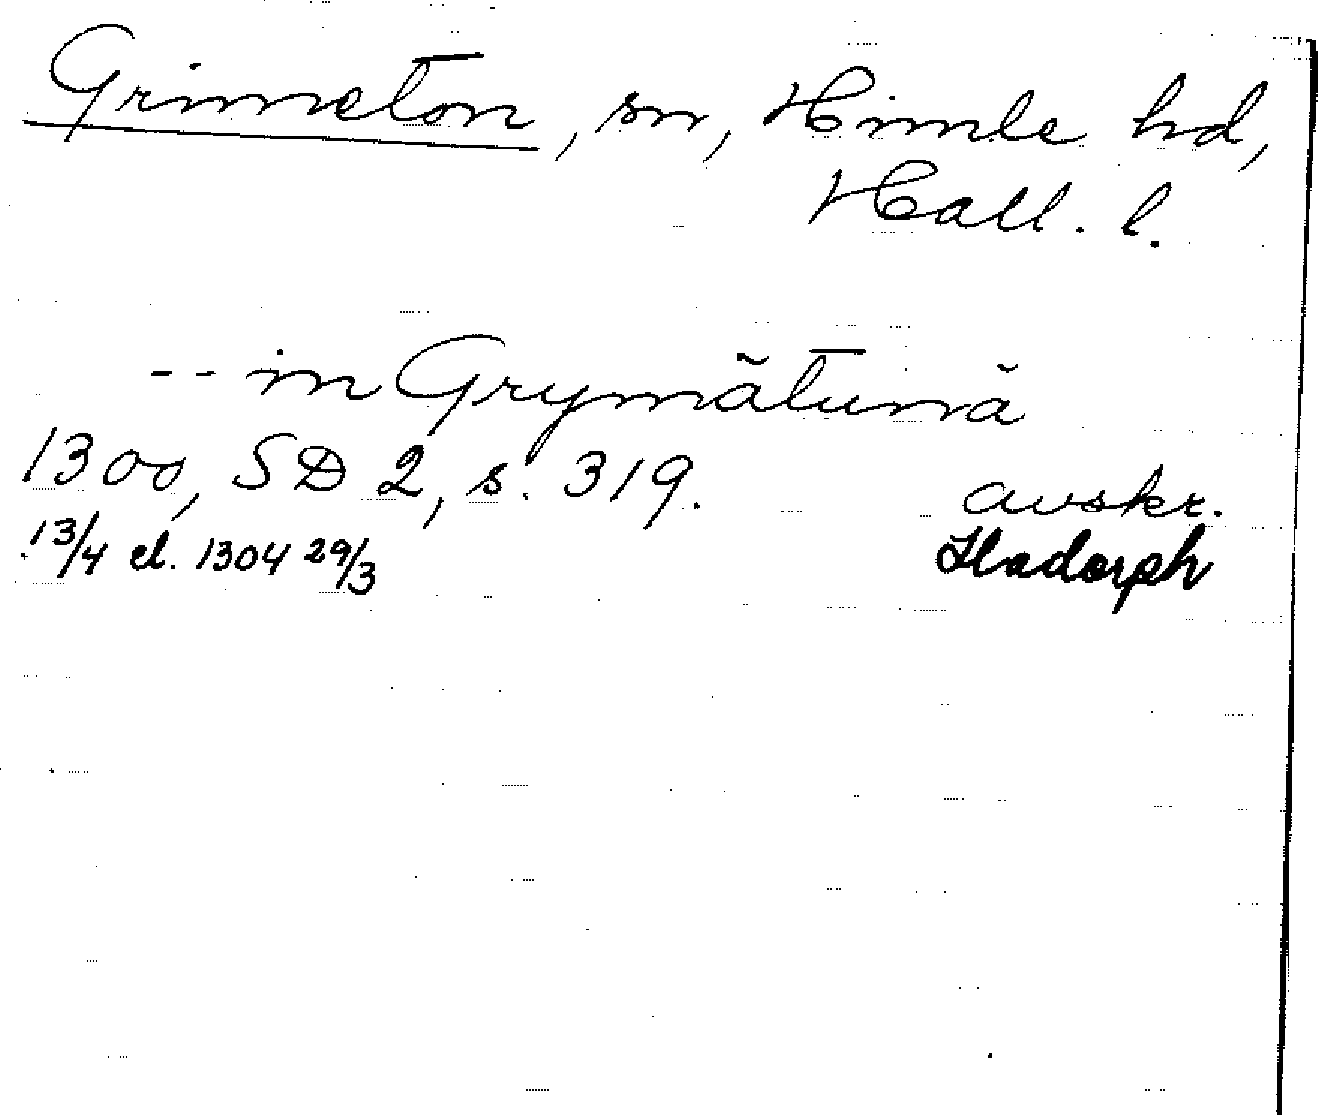 Grimeton, sn, Himle hd,
Hall. l.
-- in Grymãtunã
1300, SD 2, s. 319. avskr.
13/4 el. 1304 29/3 Hadorph